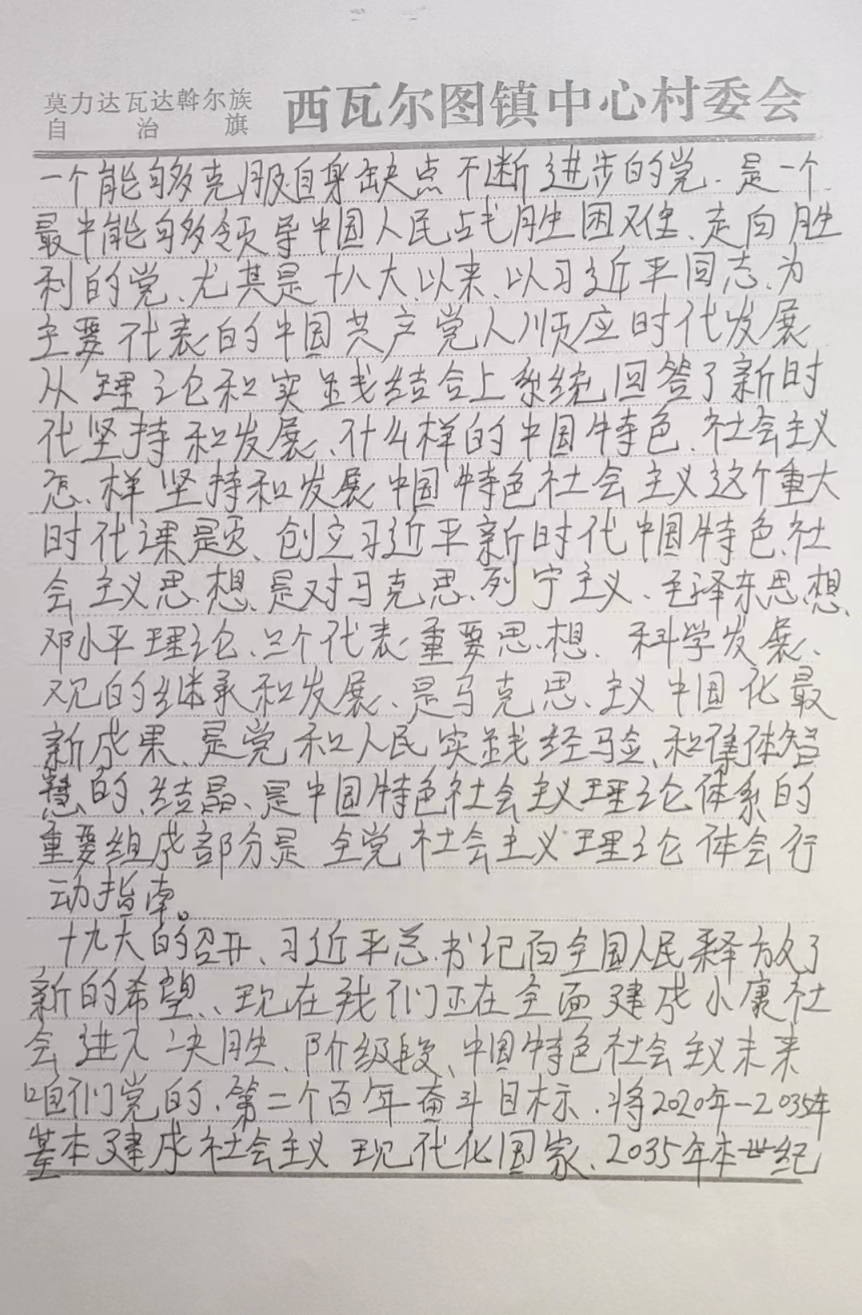 莫力达瓦达斡尔族
自治旗
西瓦尔图镇中心村委会
一个能够克服自身缺点不断进步的党、是一个
最中能够领导中国人民战胜困难、走向胜
利的党、尤其是十八大、以来、以习近平同志、为
主要代表的中国共产党人顺应时代发展
从理论和实践结合上系统回答了新时
代坚持和发展、什么样的中国特色、社会主义
怎、样坚持和发展中国特色社会主义这个重大
时代课题、创立习近平新时代中国特色、社
会主义思想、是对马克思、列宁主义、毛泽东思想、
邓小平理论、三个代表重要思想、科学发展、
观的继承和发展、是马克思、主义中国化最
新成果、是党和人民实践经验、和集体智
慧、的、结晶、是中国特色社会主义理论体系的
重要组成部分是全党社会主义理论体会行
动指南。
十九大的召开、习近平总书记向全国人民释放了
新的希望、、现在我们正在全面建成小康社
会进入决胜、阶级段、中国特色社会主义未来
咱们党的、第二个百年奋斗目标、将2020年—2035年
基本建成社会主义现代化国家、2035年本世纪